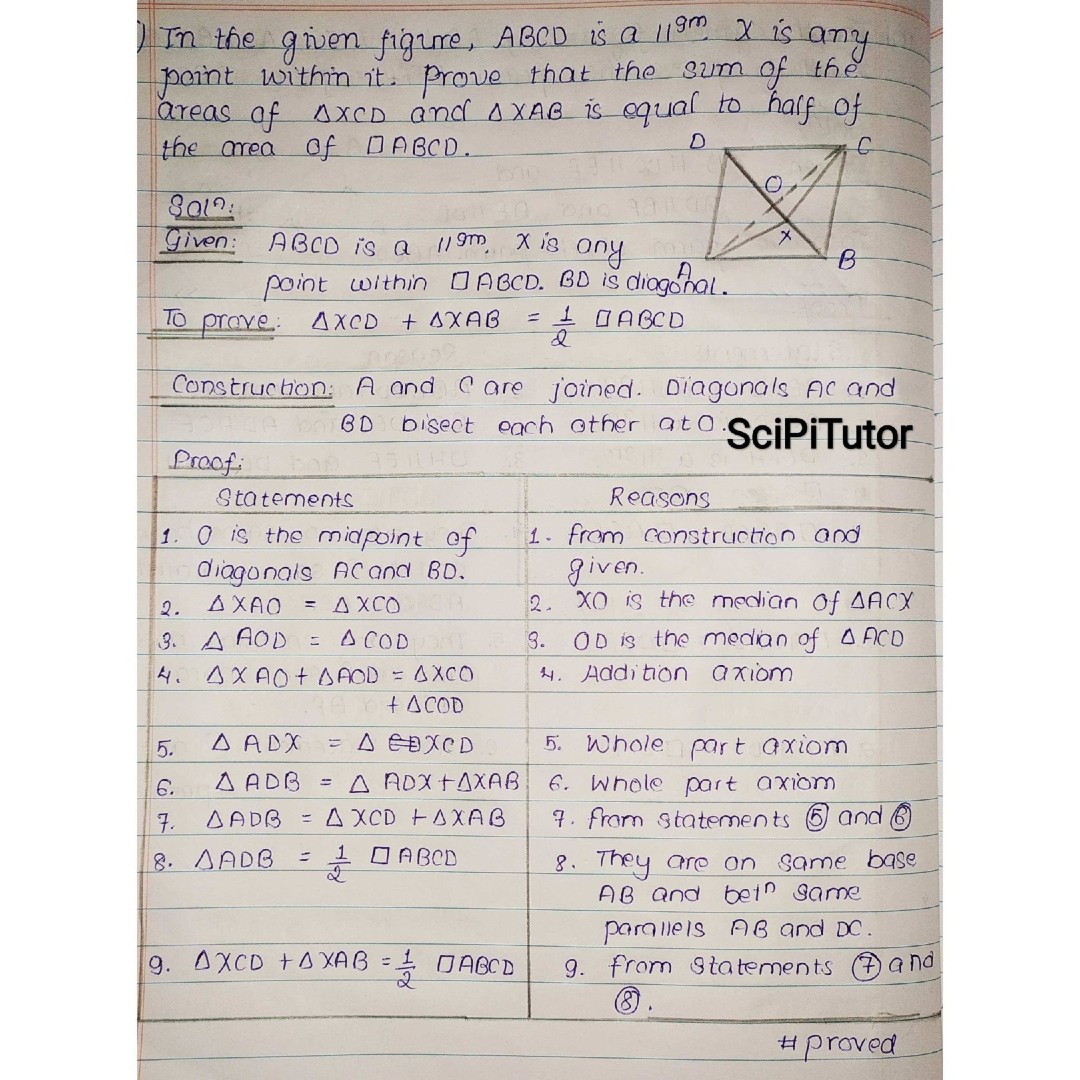 ) In the given figure, ABCD is a ||gm. X is any
point within it. Prove that the sum of the
areas of ΔXCD and ΔXAB is equal to half of
the area of □ABCD.
D
C
O
X
A
B
Solⁿ:
Given: ABCD is a ||gm. X is any
point within □ABCD. BD is diagonal.
To prove: ΔXCD + ΔXAB = 1/2 □ABCD
Construction: A and C are joined. Diagonals AC and
BD bisect each other at O.
SciPiTutor
Proof:
Statements Reasons
1. O is the midpoint of 1. from construction and
diagonals AC and BD. given.
2. ΔXAO = ΔXCO 2. XO is the median of ΔACX
3. ΔAOD = ΔCOD 3. OD is the median of ΔACD
4. ΔXAO + ΔAOD = ΔXCO 4. Addition axiom
+ ΔCOD
5. ΔADX = ΔXCD 5. Whole part axiom
6. ΔADB = ΔADX + ΔXAB 6. Whole part axiom
7. ΔADB = ΔXCD + ΔXAB 7. from statements ⑤ and ⑥
8. ΔADB = 1/2 □ABCD 8. They are on same base
AB and betⁿ same
parallels AB and DC.
9. ΔXCD + ΔXAB = 1/2 □ABCD 9. from statements ⑦ and
⑧.
# proved